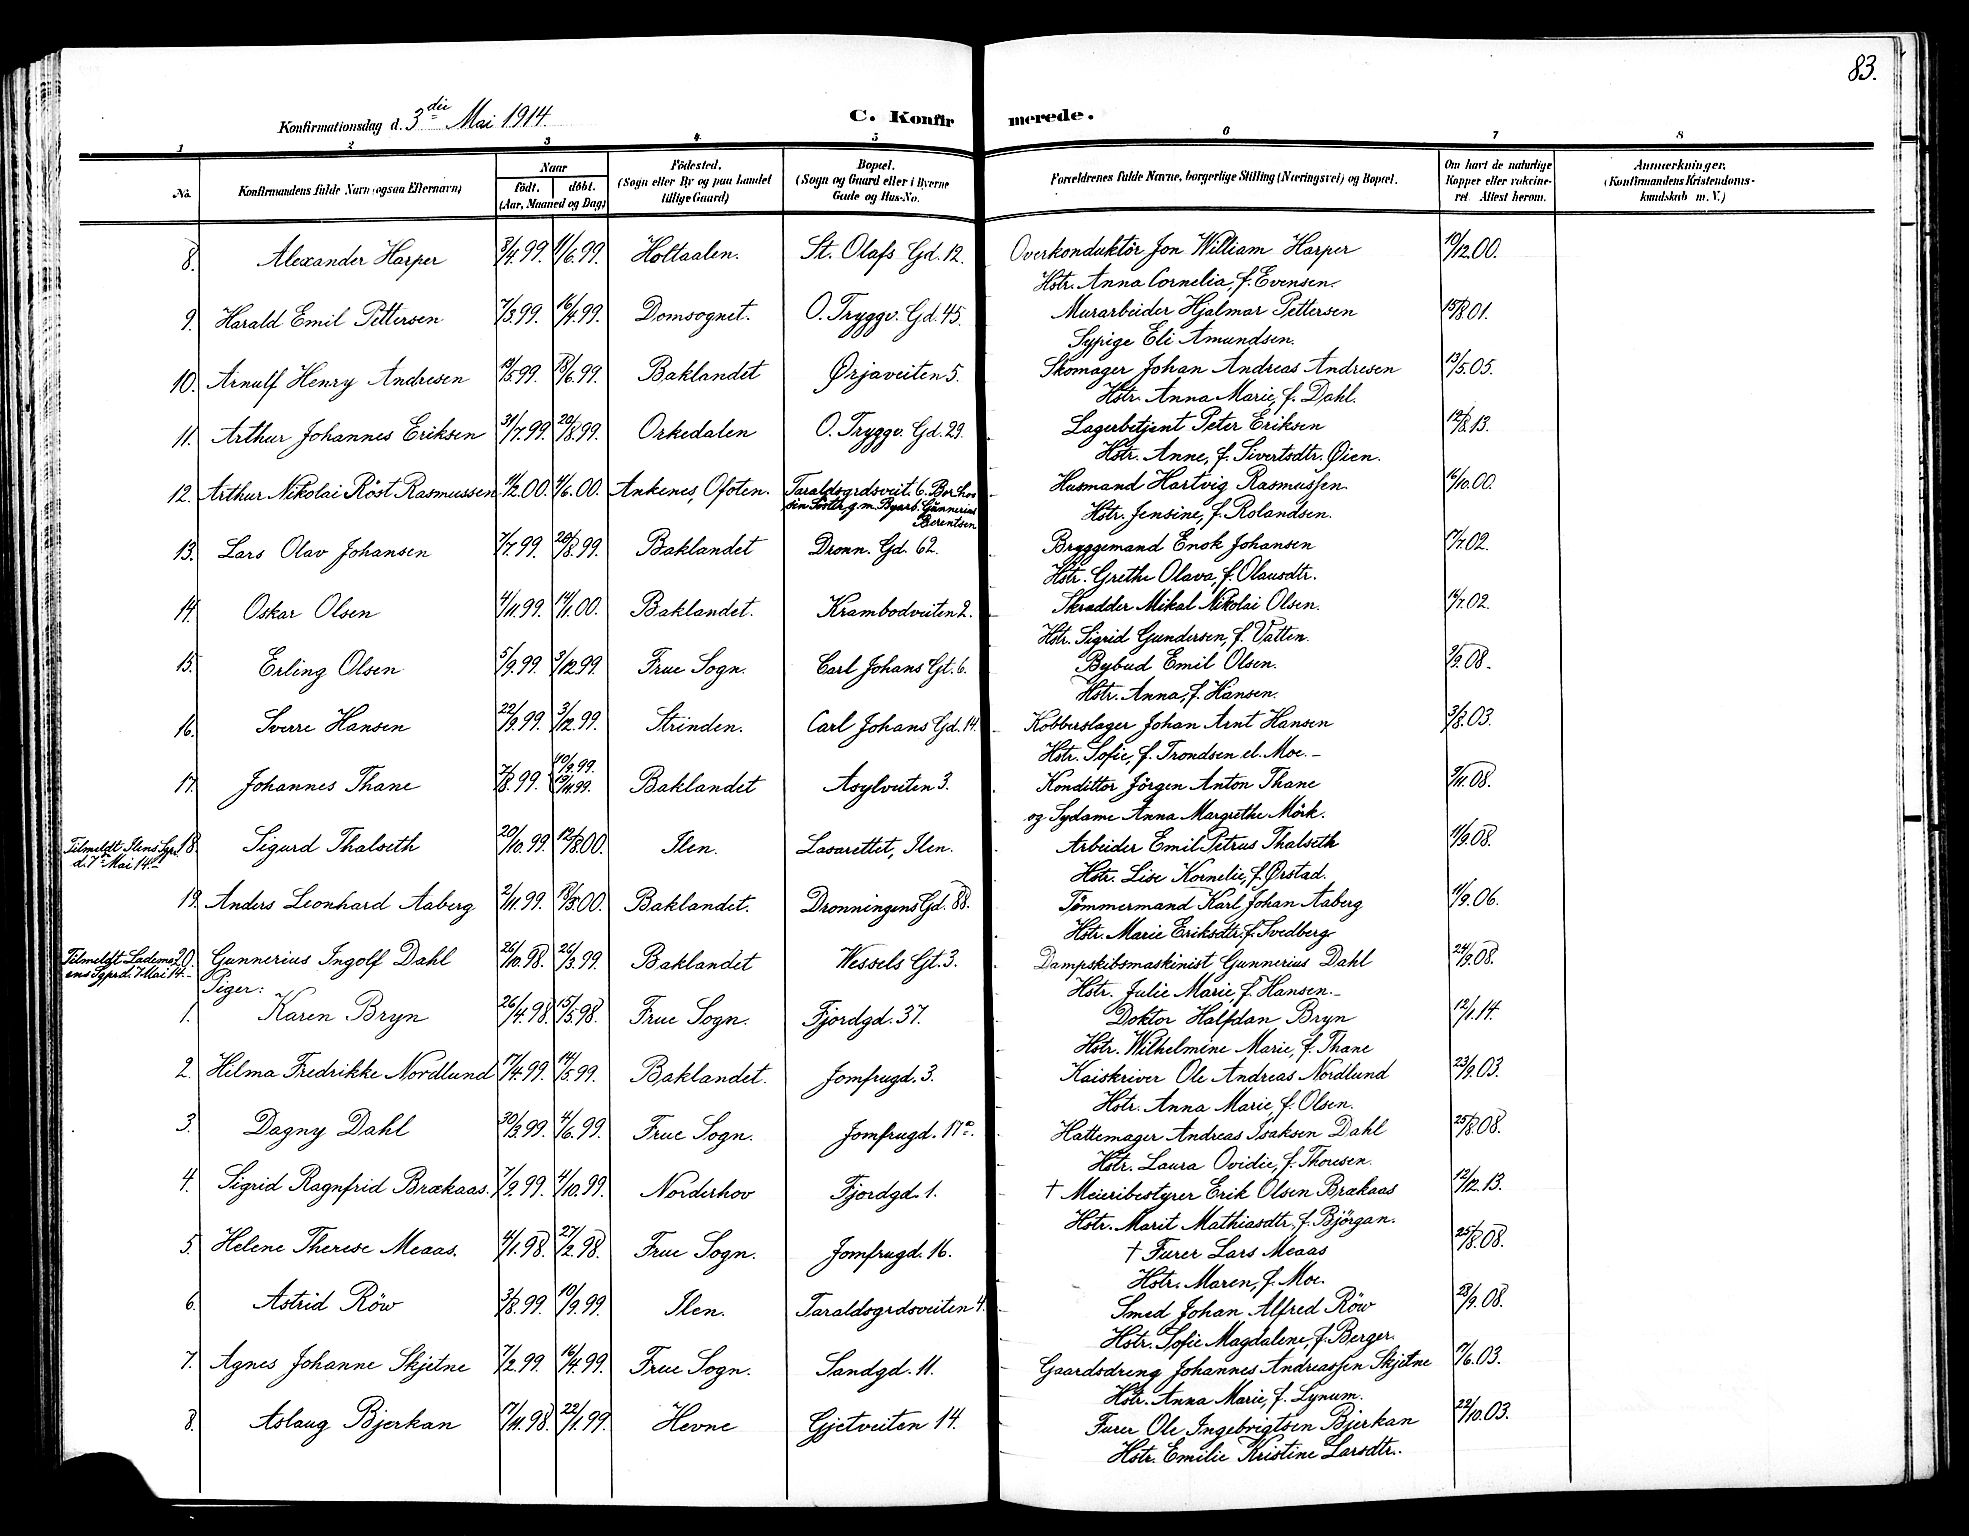 83.
Konfirmationsdag d. 3die Mai 1914.
C. Konfirmerede.
1 2 3 4 5 6 7 8
No. Konfirmandens fulde Navn (ogsaa Efternavn) Naar født. døbt. (Aar, Maaned og Dag) Fødested. (Sogn eller By og paa Landet tillige Gaard) Bopæl. (Sogn og Gaard eller i Byerne Gade og Hus-No. Forældrenes fulde Navne, borgerlige Stilling (Næringsvei) og Bopæl. Om havt de naturlige Kopper eller vaccineret. Attest herom. Anmærkninger. (Konfirmandens Kristendomskundskab m. V.)
8. Alexander Harper 3/4.99. 11/6.99. Holtaalen. St. Olafs Gd. 12. Overkonduktör Jon William Harper 10/12.00.
Hstr. Anna Cornelia, f. Evensen.
9. Harald Emil Pettersen 7/3.99. 16/4.99. Domsognet. O. Tryggv. Gd. 45. Murarbeider Hjalmar Pettersen 15/8.01.
Sypige Eli Amundsen.
10. Arnulf Henry Andresen /5.99. 18/6.99. Baklandet Ørjaveiten 5. Skomager Johan Andreas Andresen 13/5.05.
Hstr. Anna Marie, f. Dahl.
11. Arthur Johannes Eriksen 31/7.99. 20/8.99. Orkedalen O. Tryggv. Gd. 29. Lagerbetjent Peter Eriksen 12/8.13.
Hstr. Anne, f. Sivertsdtr. Øien.
12. Arthur Nikolai Röst Rasmussen 11/2.00. 4/6.00. Ankenes, Ofoten. Taraldsgrdsveit. 6. Bor hos Husmand Hartvig Rasmussen. 16/10.00.
sin Søstr. g. m. Byarb. Gunnerius Berentsen Hstr. Jensine, f. Rolandsen.
13. Lars Olav Johansen 7/7.99. 20/8.99. Baklandet Dronn. Gd. 62. Bryggemand Enok Johansen 17/7.02.
Hstr. Grethe Olava, f. Olausdtr.
14. Oskar Olsen 4/11.99. 14/1.00. Baklandet. Krambodveiten 2. Skradder Mikal Nikolai Olsen. 16/7.02.
Hstr. Sigrid Gundersen, f. Vatten.
15. Erling Olsen 5/9.99. 3/12.99. Frue Sogn. Carl Johans Gt. 6. Bybud Emil Olsen. 3/9.08.
Hstr. Anna, f. Hansen.
16. Sverre Hansen 22/9.99. 3/12.99. Strinden. Carl Johans Gd. 14. Kobberslager Johan Arnt Hansen 3/8.03.
Hstr. Sofie, f. Trondsen el. Moe.
17. Johannes Thane 7/8.99. 10/9.99. 19/11.99. Baklandet Asylveiten 3. Konditor Jörgen Anton Thane 3/11.08.
og Sydame Anna Margrethe Mörk.
Tilmeldt Ilens Spr. d. 7de Mai 14. 18. Sigurd Thalseth 20/10.99. 12/8.00. Ilen. Lasarettet, Ilen. Arbeider Emil Petrus Thalseth 11/9.08.
Hstr. Lise Kornelie, f. Ørstad.
19. Anders Leonhard Aaberg 2/11.99. 18/3.00. Baklandet. Dronningens Gd. 88. Tömmermand Karl Johan Aaberg 11/9.06.
Hstr. Marie Eriksdtr. f. Svedberg
Tilmeldt Lademoens Spr. d. 7 Mai 14. 20. Gunnerius Ingolf Dahl 26/10.98. 26/3.99. Baklandet Wessels Gt. 3. Dampskibsmaskinist Gunnerius Dahl 24/9.08.
Hstr. Julie Marie, f. Hansen.
Piger:
1. Karen Bryn 26/4.98. 15/5.98. Frue Sogn. Fjordgd. 37. Doktor Halfdan Bryn 12/1.14.
Hstr. Wilhelmine Marie, f. Thane
2. Hilma Fredrikke Nordlund 17/4.99. 14/5.99. Baklandet. Jomfrugd. 3. Kaiskriver Ole Andreas Nordlund 23/9.03.
Hstr. Anna Marie, f. Olsen.
3. Dagny Dahl 30/3.99. 4/6.99. Frue Sogn. Jomfrugd. 17a. Hattemager Andreas Isaksen Dahl 25/8.08.
Hstr. Laura Ovidie, f. Thoresen.
4. Sigrid Ragnfrid Brækaas. 7/9.99. 4/10.99. Norderhov Fjordgd. 1. † Meieribestyrer Erik Olsen Brækaas 12/12.13.
Hstr. Marit Mathiasdtr., f. Björgan.
5. Helene Therese Meaas. 4/1.98. 27/2.98. Frue Sogn. Jomfrugd. 16. † Furer Lars Meaas 25/8.08.
Hstr. Maren, f. Moe.
6. Astrid Röw 3/8.99. 10/9.99. Ilen. Taraldsgrdsveiten 4. Smed Johan Alfred Röw 28/9.08.
Hstr. Sofie Magdalene, f. Berger.
7. Agnes Johanne Skjetne 7/2.99. 16/4.99. Frue Sogn. Sandgd. 11. Gaardsdreng Johannes Andreassen Skjetne 17/6.03.
Hstr. Anna Marie, f. Lynum.
8. Aslaug Bjerkan 17/11.98. 22/1.99. Hevne Gjetveiten 14. Furer Ole Ingebrigtsen Bjerkan 22/10.03.
Hstr. Emilie Kristine Larsdtr.